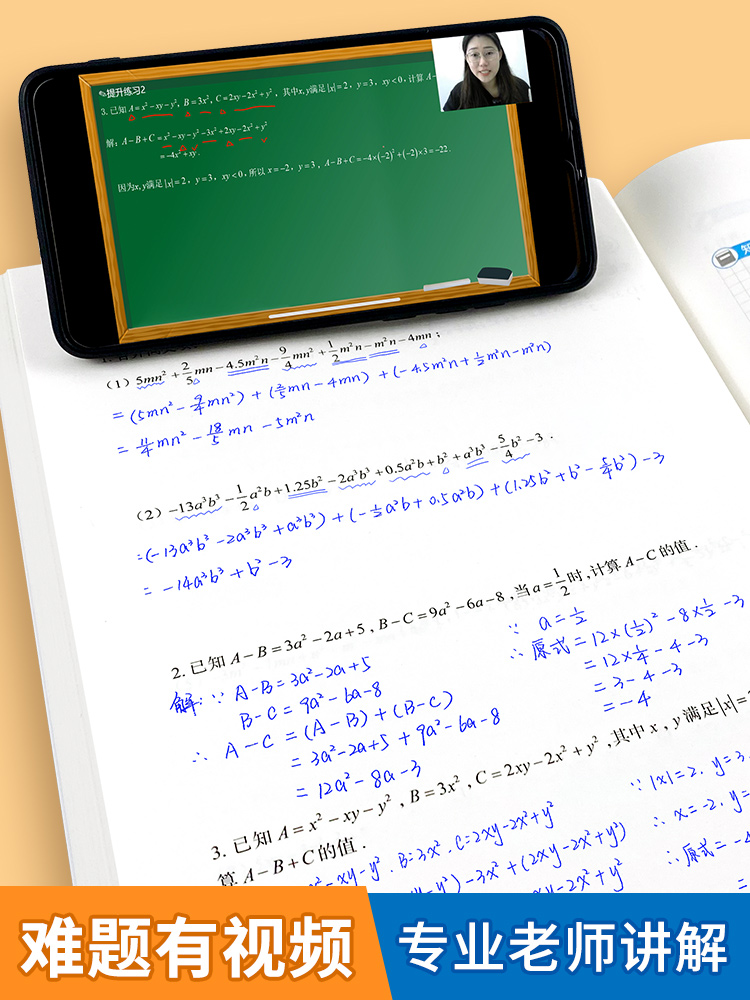 提升练习2
3. 已知 A=x²-xy-y², B=3x², C=2xy-2x²+y², 其中x,y满足 |x|=2, y=3, xy<0, 计算 A-
解: A-B+C=x²-xy-y²-3x²+2xy-2x²+y²
=-4x²+xy.
因为x,y满足 |x|=2, y=3, xy<0, 所以 x=-2, y=3, A-B+C=-4×(-2)²+(-2)×3=-22.
知
(1) 5mn²+2/5mn-4.5m²n-9/4mn²+1/2m²n-m²n-4mn;
=(5mn²-9/4mn²)+(2/5mn-4mn)+(-4.5m²n+1/2m²n-m²n)
=11/4mn²-18/5mn-5m²n
(2) -13a³b³-1/2a²b+1.25b²-2a³b³+0.5a²b+b²+a³b³-5/4b²-3.
=(-13a³b³-2a³b³+a³b³)+(-1/2a²b+0.5a²b)+(1.25b²+b²-5/4b²)-3
=-14a³b³+b²-3
2. 已知 A-B=3a²-2a+5, B-C=9a²-6a-8, 当 a=1/2 时, 计算 A-C 的值.
解: ∵ A-B=3a²-2a+5
B-C=9a²-6a-8
∴ A-C=(A-B)+(B-C)
=3a²-2a+5+9a²-6a-8
=12a²-8a-3
∵ a=1/2
∴ 原式=12×(1/2)²-8×1/2-3
=12×1/4-4-3
=3-4-3
=-4
3. 已知 A=x²-xy-y², B=3x², C=2xy-2x²+y², 其中 x, y 满足|x|=
算 A-B+C 的值.
x²-xy-y². B=3x². C=2xy-2x²+y²
-y²)-3x²+(2xy-2x²+y²)
xy-2x²+y²
∵ |x|=2. y=3.
∴ x=-2. y=
∴ 原式=-4
难题有视频 专业老师讲解